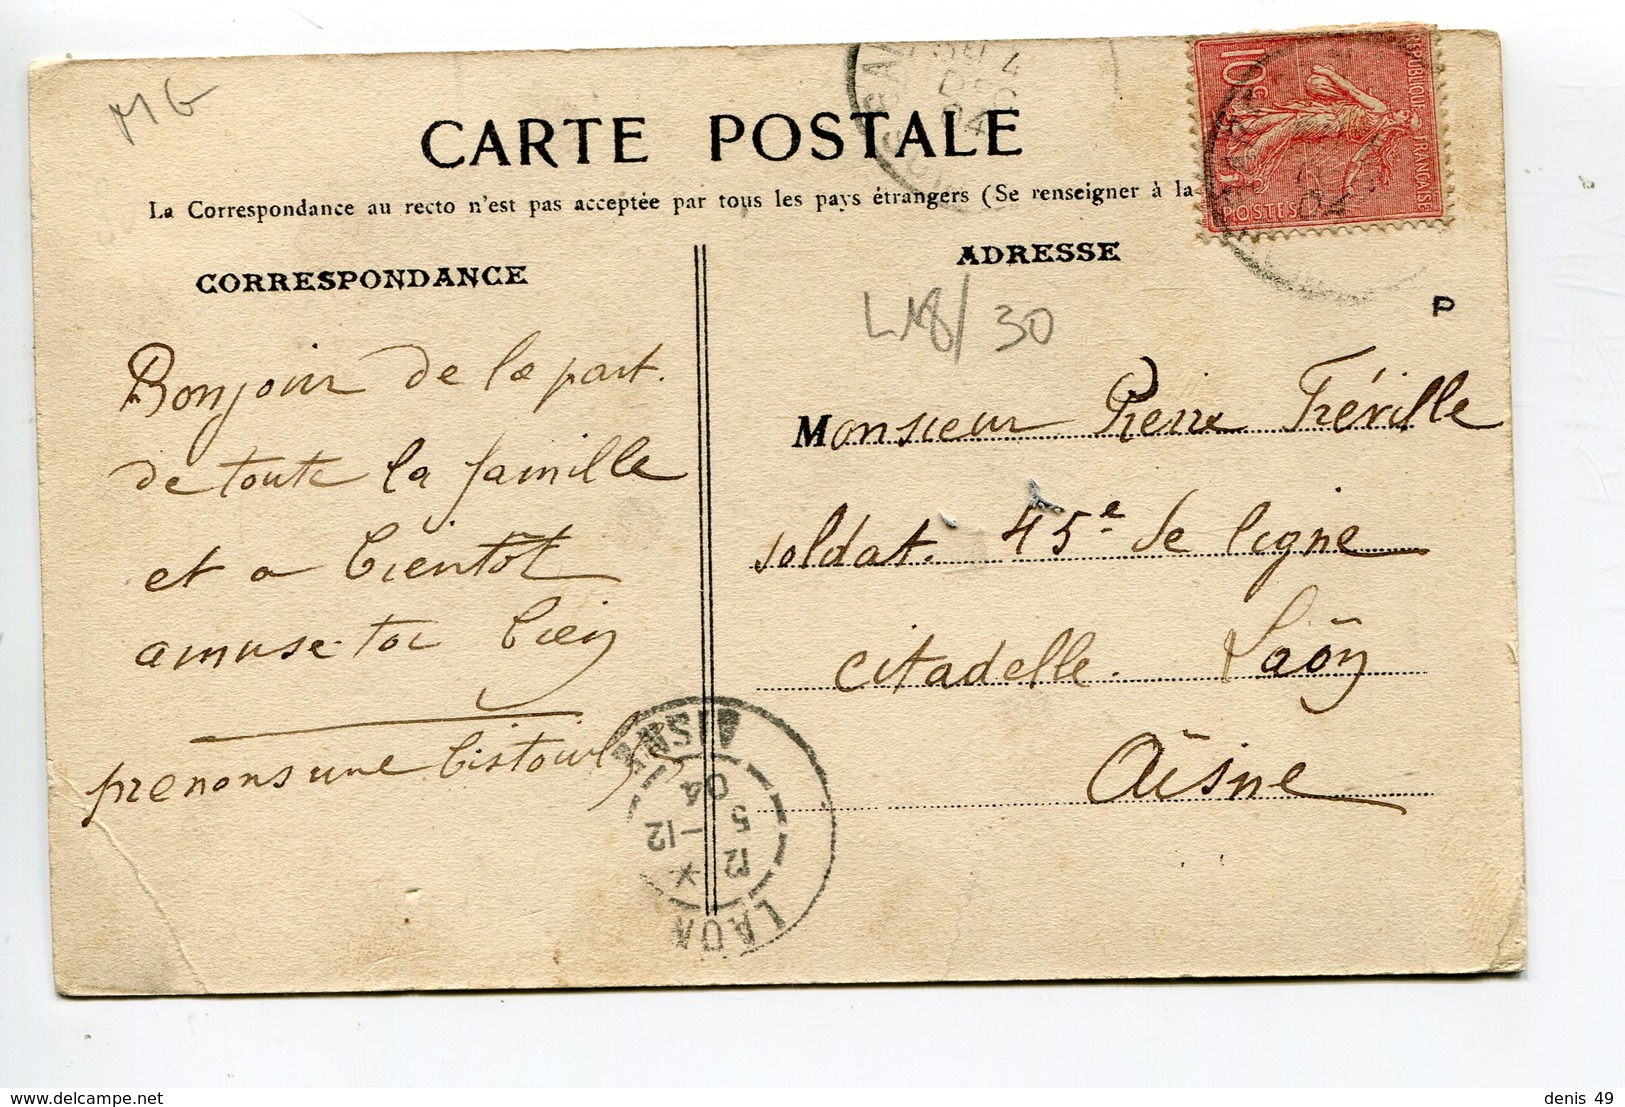 MG
CARTE POSTALE
La Correspondance au recto n'est pas acceptée par tous les pays étrangers (Se renseigner à la
CORRESPONDANCE
Bonjour de la part
de toute la famille
et a bientôt
amuse-toi bien
prenons une
ADRESSE
L18/30
P
Monsieur Pierre Fréville
soldat. 45e de ligne
citadelle. Laôn
Aîsne
10c
REPUBLIQUE FRANÇAISE
POSTES
LAON
AISNE
12
5 -12
04
denis 49